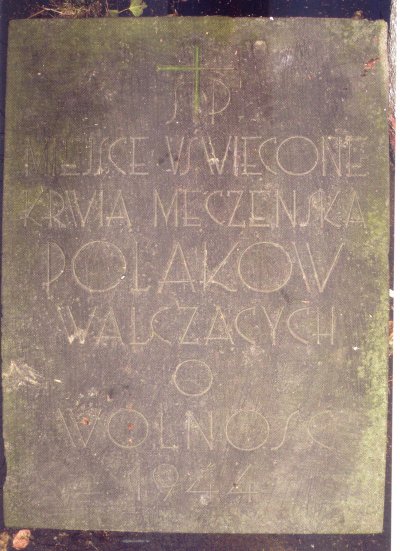 Ś P
MIEJSCE UŚWIĘCONE
KRWIĄ MĘCZEŃSKĄ
POLAKÓW
WALCZĄCYCH
O
WOLNOŚĆ
1944